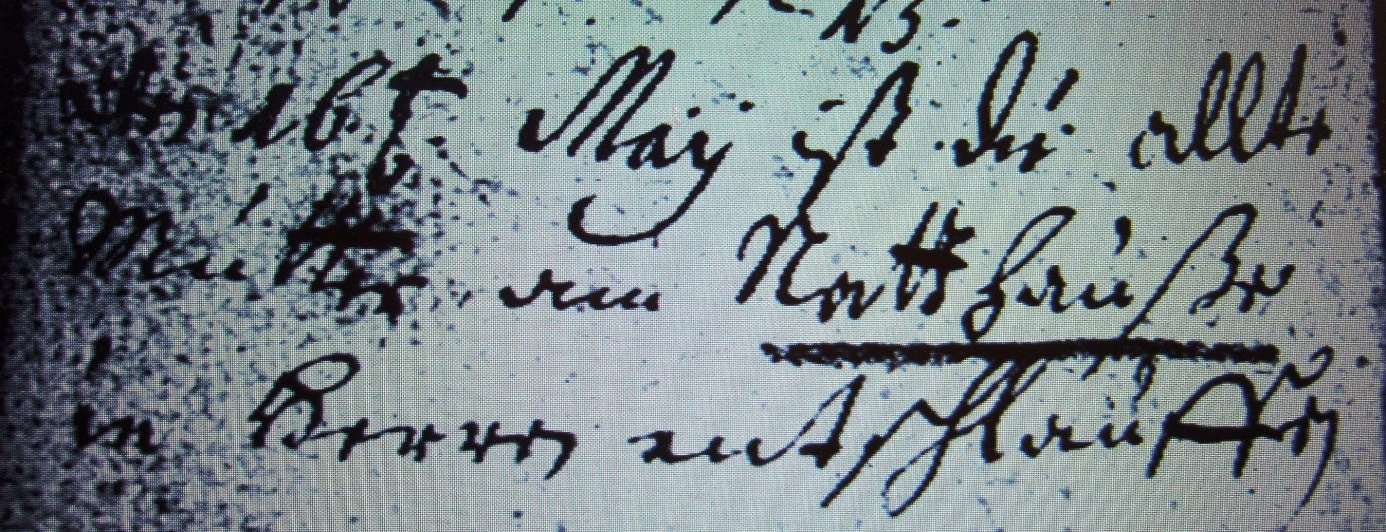 23.
den 16t. Maÿ ist die allte
Mutter am Natthauße
in Herren entschlaúffen